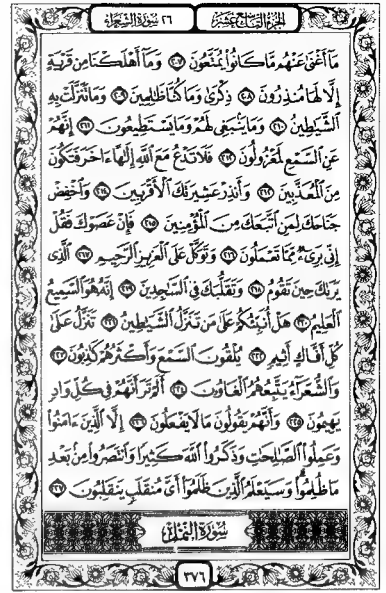 الجزء التاسع عشر ٢٦ سورة الشعراء
مَآ أَغْنَىٰ عَنْهُم مَّا كَانُوا۟ يُمَتَّعُونَ ۝٢٠٧ وَمَآ أَهْلَكْنَا مِن قَرْيَةٍ
إِلَّا لَهَا مُنذِرُونَ ۝٢٠٨ ذِكْرَىٰ وَمَا كُنَّا ظَٰلِمِينَ ۝٢٠٩ وَمَا تَنَزَّلَتْ بِهِ
ٱلشَّيَٰطِينُ ۝٢١٠ وَمَا يَنۢبَغِى لَهُمْ وَمَا يَسْتَطِيعُونَ ۝٢١١ إِنَّهُمْ
عَنِ ٱلسَّمْعِ لَمَعْزُولُونَ ۝٢١٢ فَلَا تَدْعُ مَعَ ٱللَّهِ إِلَٰهًا ءَاخَرَ فَتَكُونَ
مِنَ ٱلْمُعَذَّبِينَ ۝٢١٣ وَأَنذِرْ عَشِيرَتَكَ ٱلْأَقْرَبِينَ ۝٢١٤ وَٱخْفِضْ
جَنَاحَكَ لِمَنِ ٱتَّبَعَكَ مِنَ ٱلْمُؤْمِنِينَ ۝٢١٥ فَإِنْ عَصَوْكَ فَقُلْ
إِنِّى بَرِىٓءٌ مِّمَّا تَعْمَلُونَ ۝٢١٦ وَتَوَكَّلْ عَلَى ٱلْعَزِيزِ ٱلرَّحِيمِ ۝٢١٧ ٱلَّذِى
يَرَىٰكَ حِينَ تَقُومُ ۝٢١٨ وَتَقَلُّبَكَ فِى ٱلسَّٰجِدِينَ ۝٢١٩ إِنَّهُۥ هُوَ ٱلسَّمِيعُ
ٱلْعَلِيمُ ۝٢٢٠ هَلْ أُنَبِّئُكُمْ عَلَىٰ مَن تَنَزَّلُ ٱلشَّيَٰطِينُ ۝٢٢١ تَنَزَّلُ عَلَىٰ
كُلِّ أَفَّاكٍ أَثِيمٍ ۝٢٢٢ يُلْقُونَ ٱلسَّمْعَ وَأَكْثَرُهُمْ كَٰذِبُونَ ۝٢٢٣
وَٱلشُّعَرَآءُ يَتَّبِعُهُمُ ٱلْغَاوُۥنَ ۝٢٢٤ أَلَمْ تَرَ أَنَّهُمْ فِى كُلِّ وَادٍ
يَهِيمُونَ ۝٢٢٥ وَأَنَّهُمْ يَقُولُونَ مَا لَا يَفْعَلُونَ ۝٢٢٦ إِلَّا ٱلَّذِينَ ءَامَنُوا۟
وَعَمِلُوا۟ ٱلصَّٰلِحَٰتِ وَذَكَرُوا۟ ٱللَّهَ كَثِيرًا وَٱنتَصَرُوا۟ مِنۢ بَعْدِ
مَا ظُلِمُوا۟ ۗ وَسَيَعْلَمُ ٱلَّذِينَ ظَلَمُوٓا۟ أَىَّ مُنقَلَبٍ يَنقَلِبُونَ ۝٢٢٧
سورة النمل
٣٧٦